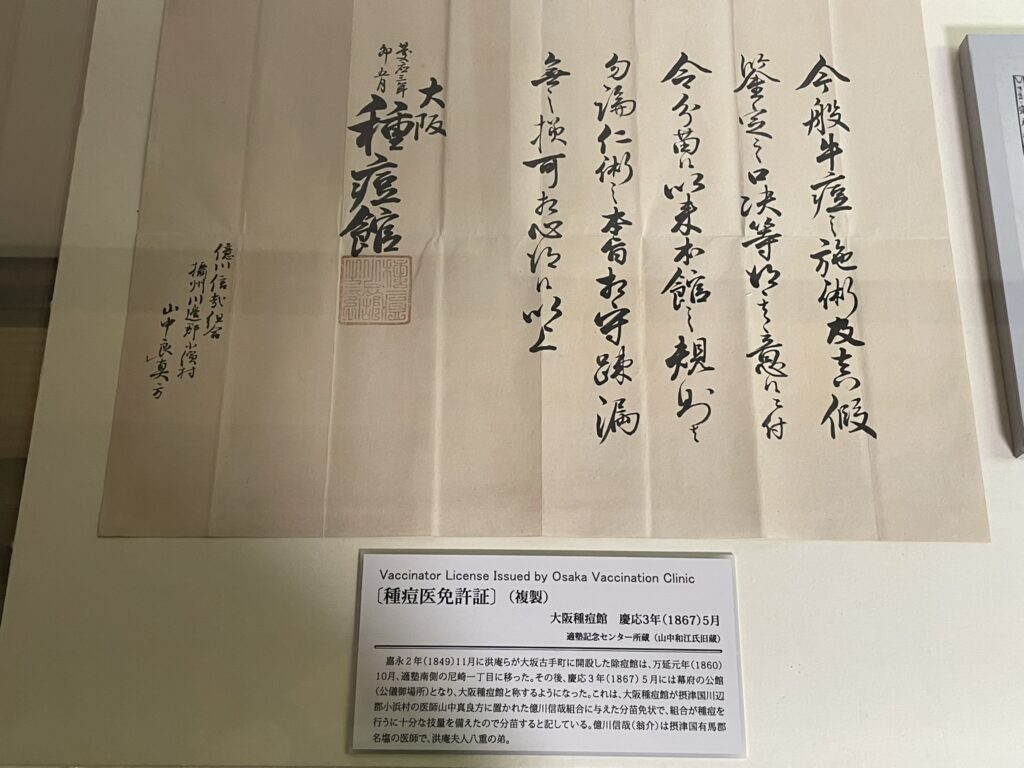 今般牛痘之施術及真假
鑒定之口决等得其意候ニ付
令分苗候以来本館之規則者
勿論仁術之本旨相守疎漏
無之様可相心得候以上
慶応三年
卯五月
大阪
種痘館
億川信哉組合
摂州川邊郡小濱村
山中良真方
Vaccinator License Issued by Osaka Vaccination Clinic
〔種痘医免許証〕（複製）
大阪種痘館　慶応3年(1867)5月
適塾記念センター所蔵（山中和江氏旧蔵）
嘉永２年(1849)11月に洪庵らが大坂古手町に開設した除痘館は、万延元年(1860)
10月、適塾南側の尼崎一丁目に移った。その後、慶応３年(1867)５月には幕府の公館
(公儀御場所)となり、大阪種痘館と称するようになった。これは、大阪種痘館が摂津国川辺
郡小浜村の医師山中真良方に置かれた億川信哉組合に与えた分苗免状で、組合が種痘を
行うに十分な技量を備えたので分苗すると記している。億川信哉(翁介)は摂津国有馬郡
名塩の医師で、洪庵夫人八重の弟。